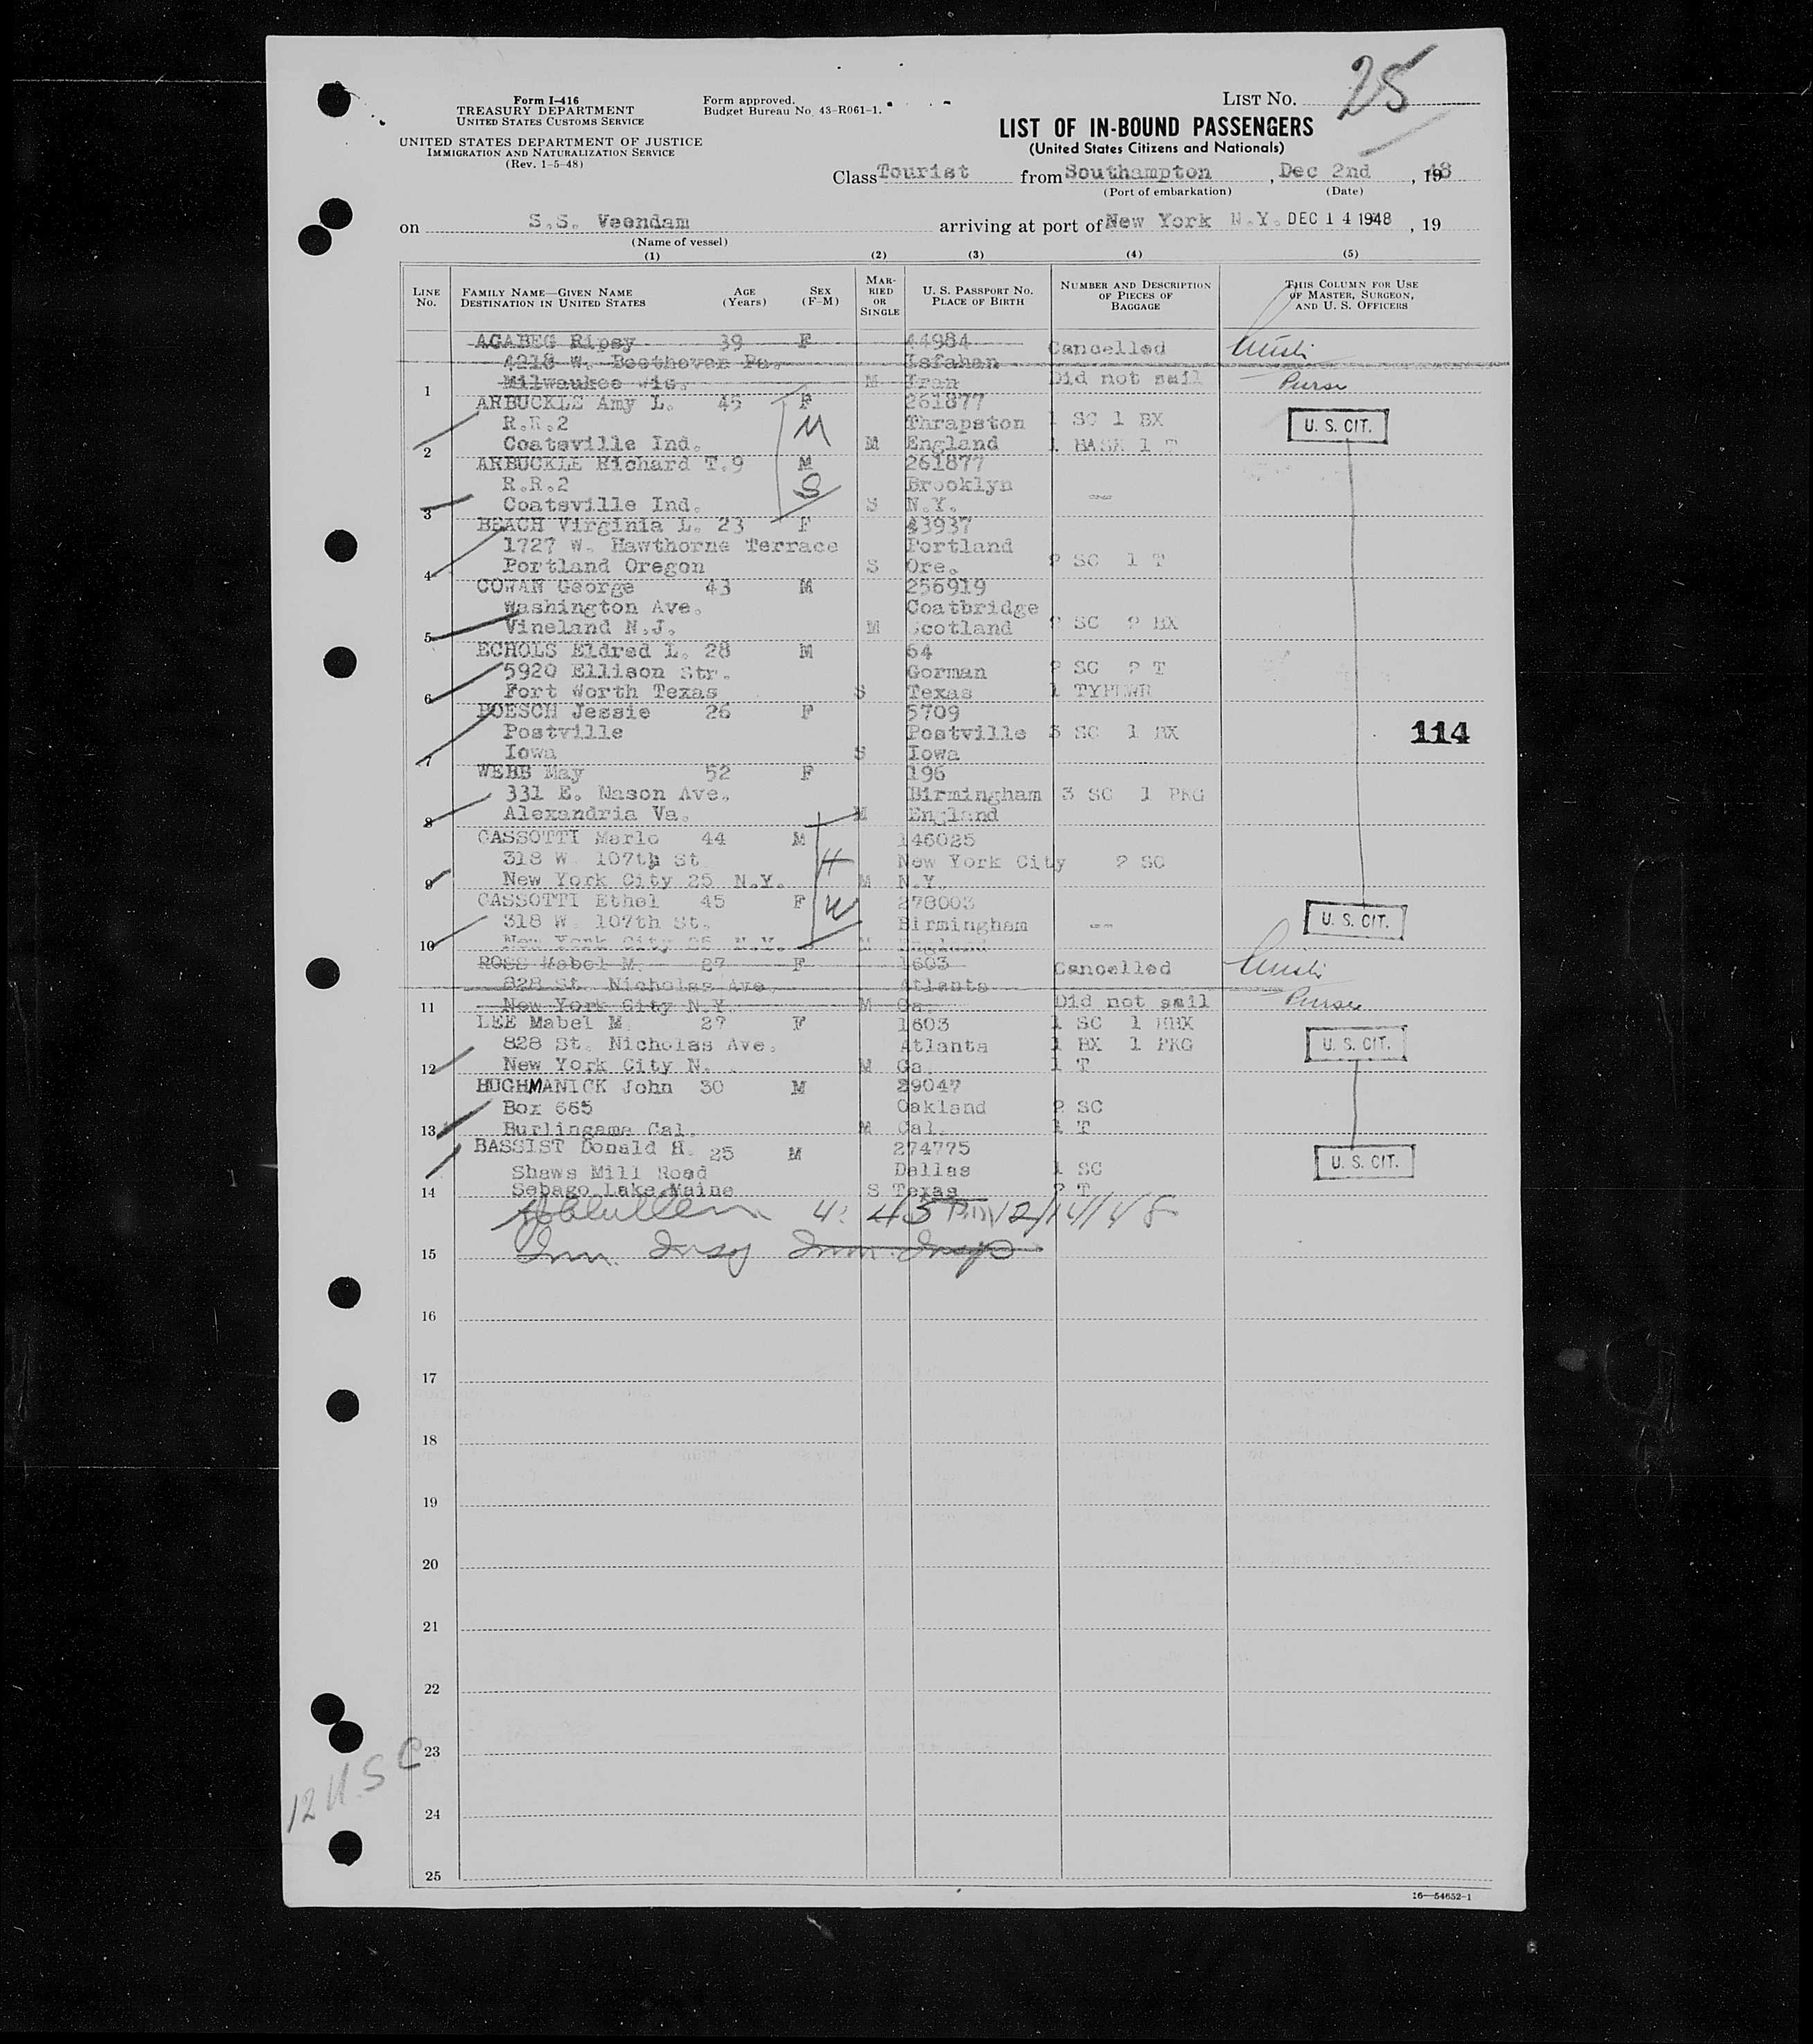 Form I-416
TREASURY DEPARTMENT
UNITED STATES CUSTOMS SERVICE
UNITED STATES DEPARTMENT OF JUSTICE
IMMIGRATION AND NATURALIZATION SERVICE
(Rev. 1-5-48)
Form approved.
Budget Bureau No. 43-R061-1.
LIST NO. 25
LIST OF IN-BOUND PASSENGERS
(United States Citizens and Nationals)
Class Tourist from Southampton, Dec 2nd, 1948
(Port of embarkation) (Date)
on S.S. Veendam arriving at port of New York N.Y. DEC 14 1948, 19
(Name of vessel)
(1) (2) (3) (4) (5)
LINE NO. FAMILY NAME—GIVEN NAME DESTINATION IN UNITED STATES AGE (Years) SEX (F-M) MARRIED OR SINGLE U. S. PASSPORT NO. PLACE OF BIRTH NUMBER AND DESCRIPTION OF PIECES OF BAGGAGE THIS COLUMN FOR USE OF MASTER, SURGEON, AND U. S. OFFICERS
AGABEG Ripsy 39 F 44984 Cancelled
4218 W. Beethoven Pa. Isfahan
1 Milwaukee Wis. M Iran Did not sail Purser
ARBUCKLE Amy L. 45 F 261877
R.R.2 M Thrapston 1 SC 1 BX U. S. CIT.
2 Coatsville Ind. M England 1 BASK 1 T
ARBUCKLE Richard T. 9 M 261877
R.R.2 S Brooklyn --
3 Coatsville Ind. S N.Y.
BEACH Virginia L. 23 F 43937
1727 W. Hawthorne Terrace Portland
4 Portland Oregon S Ore. 2 SC 1 T
COWAN George 43 M 256919
Washington Ave. Coatbridge
5 Vineland N.J. M Scotland 2 SC 2 BX
ECHOLS Eldred L. 28 M 64
5920 Ellison Str. Gorman 2 SC 2 T
6 Fort Worth Texas S Texas 1 TYPEWR
POESCH Jessie 26 F 5709
Postville Postville 3 SC 1 BX 114
7 Iowa S Iowa
WEBB May 52 F 196
331 E. Mason Ave. Birmingham 3 SC 1 PKG
8 Alexandria Va. M England
CASSOTTI Mario 44 M 146025
318 W. 107th St H New York City 2 SC
9 New York City 25 N.Y. M N.Y.
CASSOTTI Ethel 45 F W 278003
318 W. 107th St. Birmingham -- U. S. CIT.
10 New York City 25 N.Y. M England
ROSS Mabel M. 27 F 1603 Cancelled
828 St. Nicholas Ave. Atlanta
11 New York City N.Y. M Ga. Did not sail Purser
LEE Mabel M. 27 F 1603 1 SC
828 St. Nicholas Ave. Atlanta 1 BX 1 PKG U. S. CIT.
12 New York City N. M Ga. 1 T
HUGHMANICK John 30 M 29047
Box 665 Oakland 2 SC
13 Burlingame Cal. M Cal. 1 T
BASSIST Donald H. 25 M 274775
Shaws Mill Road Dallas 1 SC U. S. CIT.
14 Sebago Lake Maine S Texas 2 T
4:45 PM 12/14/48
15 Imm. Insp Imm. Insp
16
17
18
19
20
21
22
23
12 U.S C
24
25
16—54652-1